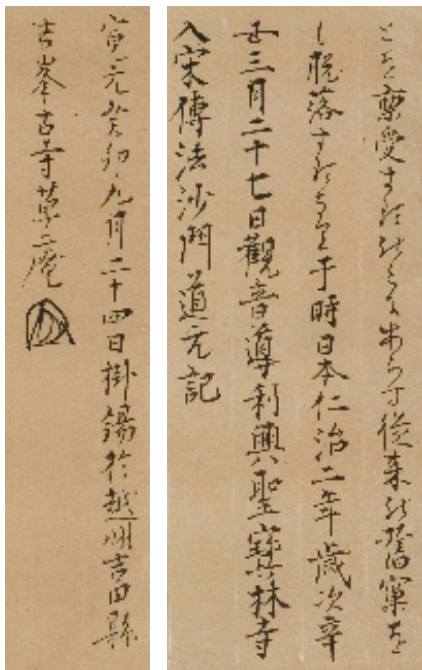 とを稟受するのみにあらす從來の舊窠を
も脱落するなり于時日本仁治二年歳次辛
丑三月二十七日觀音導利興聖寶林寺
入宋傳法沙門道元記
寛元癸卯九月二十四日掛錫於越州吉田縣
吉峯古寺草庵